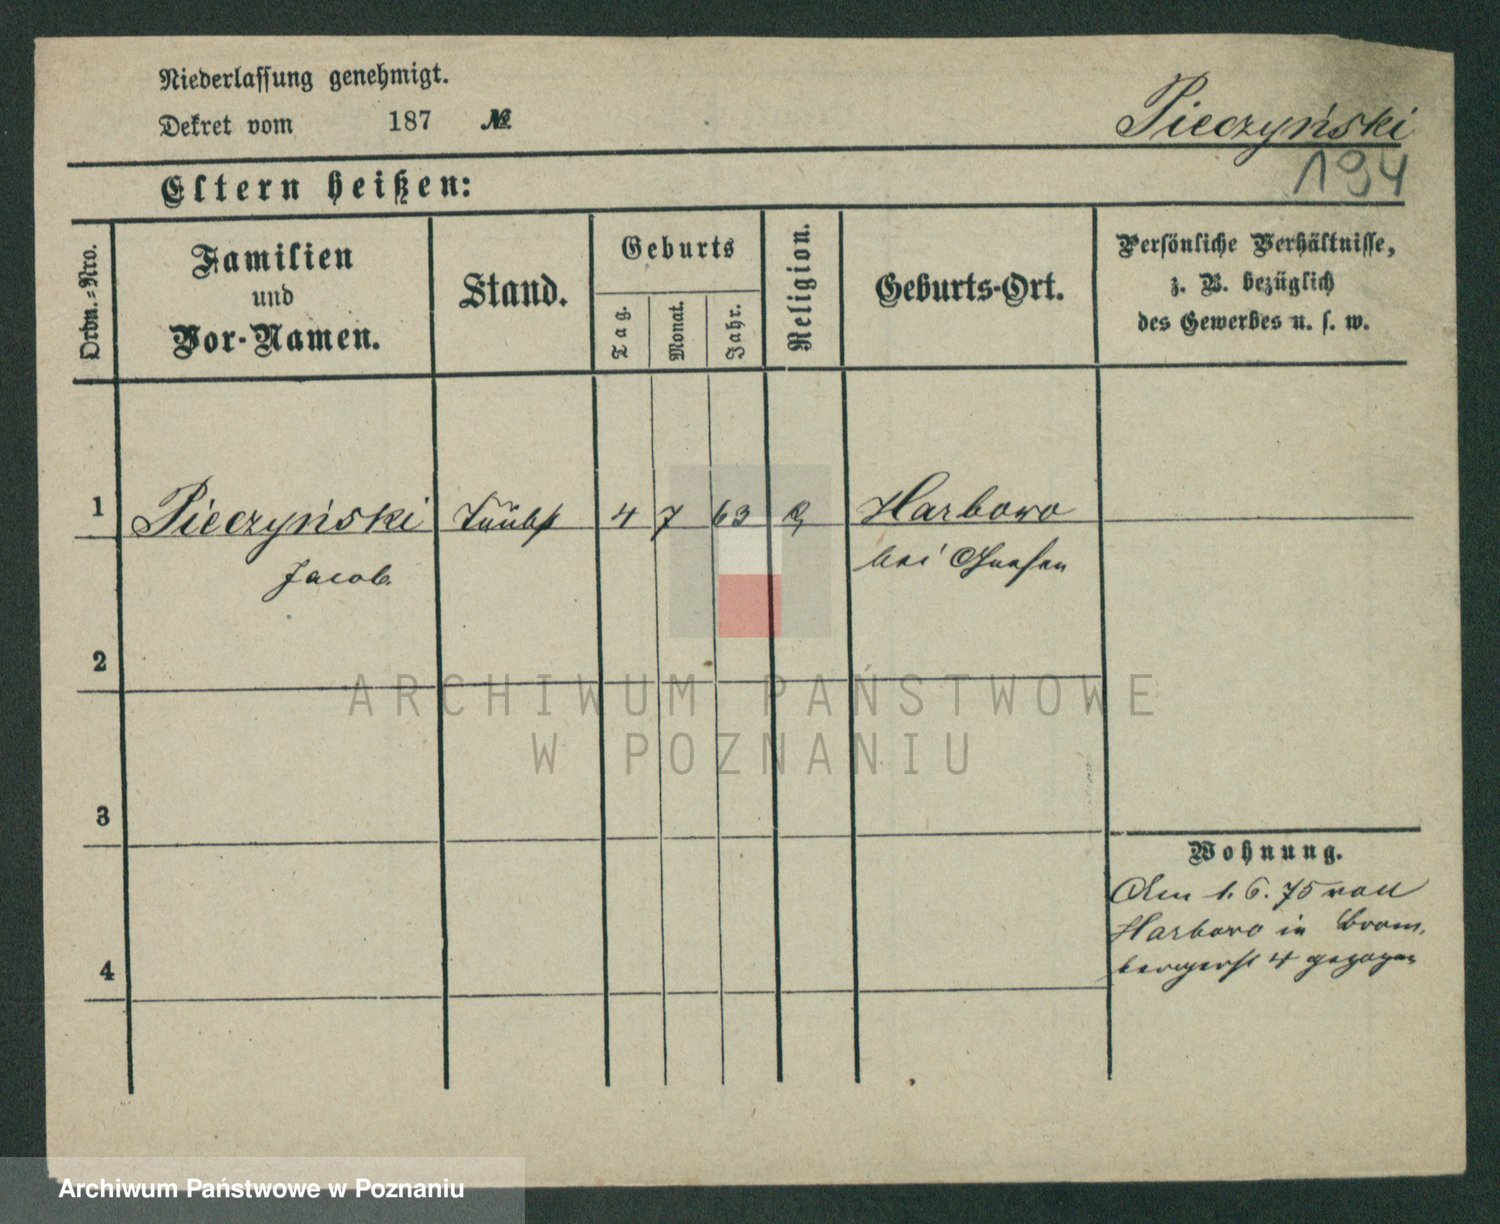 Niederlassung genehmigt.
Dekret vom 187 №
Pieczyński
194
Eltern heißen:
Ordn.-Nro.
Familien
und
Vor-Namen.
Stand.
Geburts
Tag.
Monat.
Jahr.
Religion.
Geburts-Ort.
Persönliche Verhältnisse,
z. B. bezüglich
des Gewerbes u. s. w.
1 Pieczyński 4 7 63 Harbowo
Jacob. bei Gnesen
2
3
4
Wohnung.
Am 1. 6. 75 von
Harbowo in Brom,
bergerst 4 gezogen
ARCHIWUM PAŃSTWOWE
W POZNANIU
Archiwum Państwowe w Poznaniu